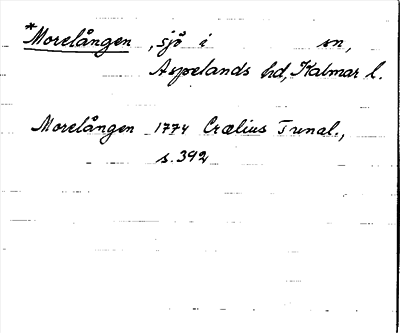 *Morelången, sjö i sn,
Aspelands hd, Kalmar l.
Morelången 1774 Crælius Tunal.,
s. 392